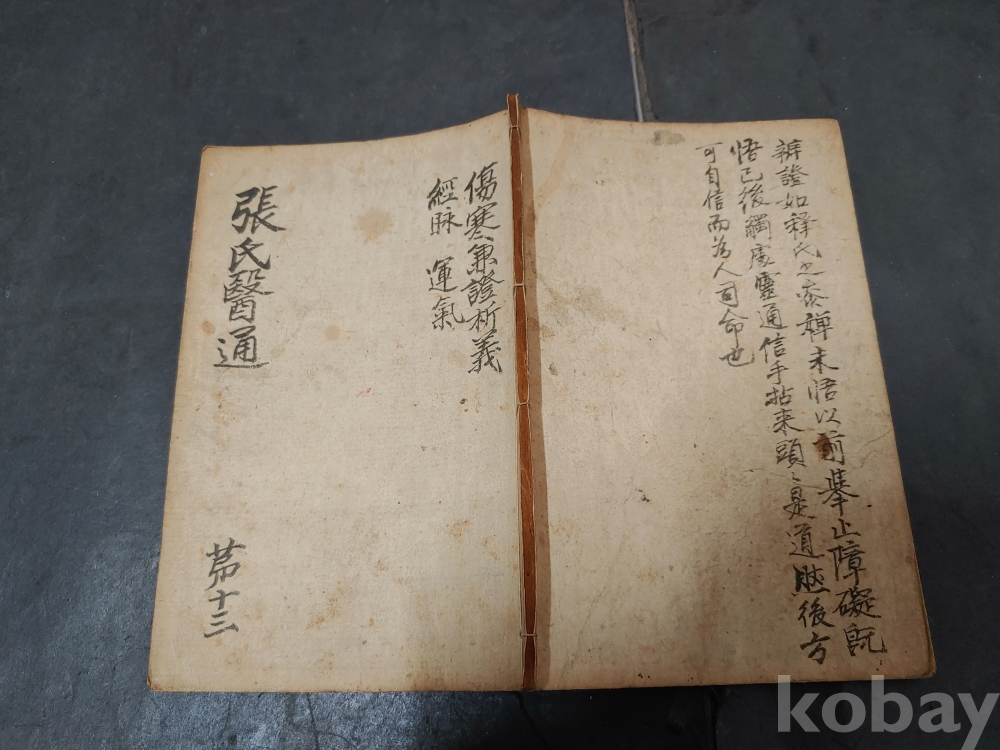 辨證如釋氏之叅禪未悟以前舉止障礙既
悟已後觸處靈通信手拈来頭々是道然後方
可自信而為人司命也
傷寒兼證析義
經脉 運氣
張氏醫通
苐十三
kobay